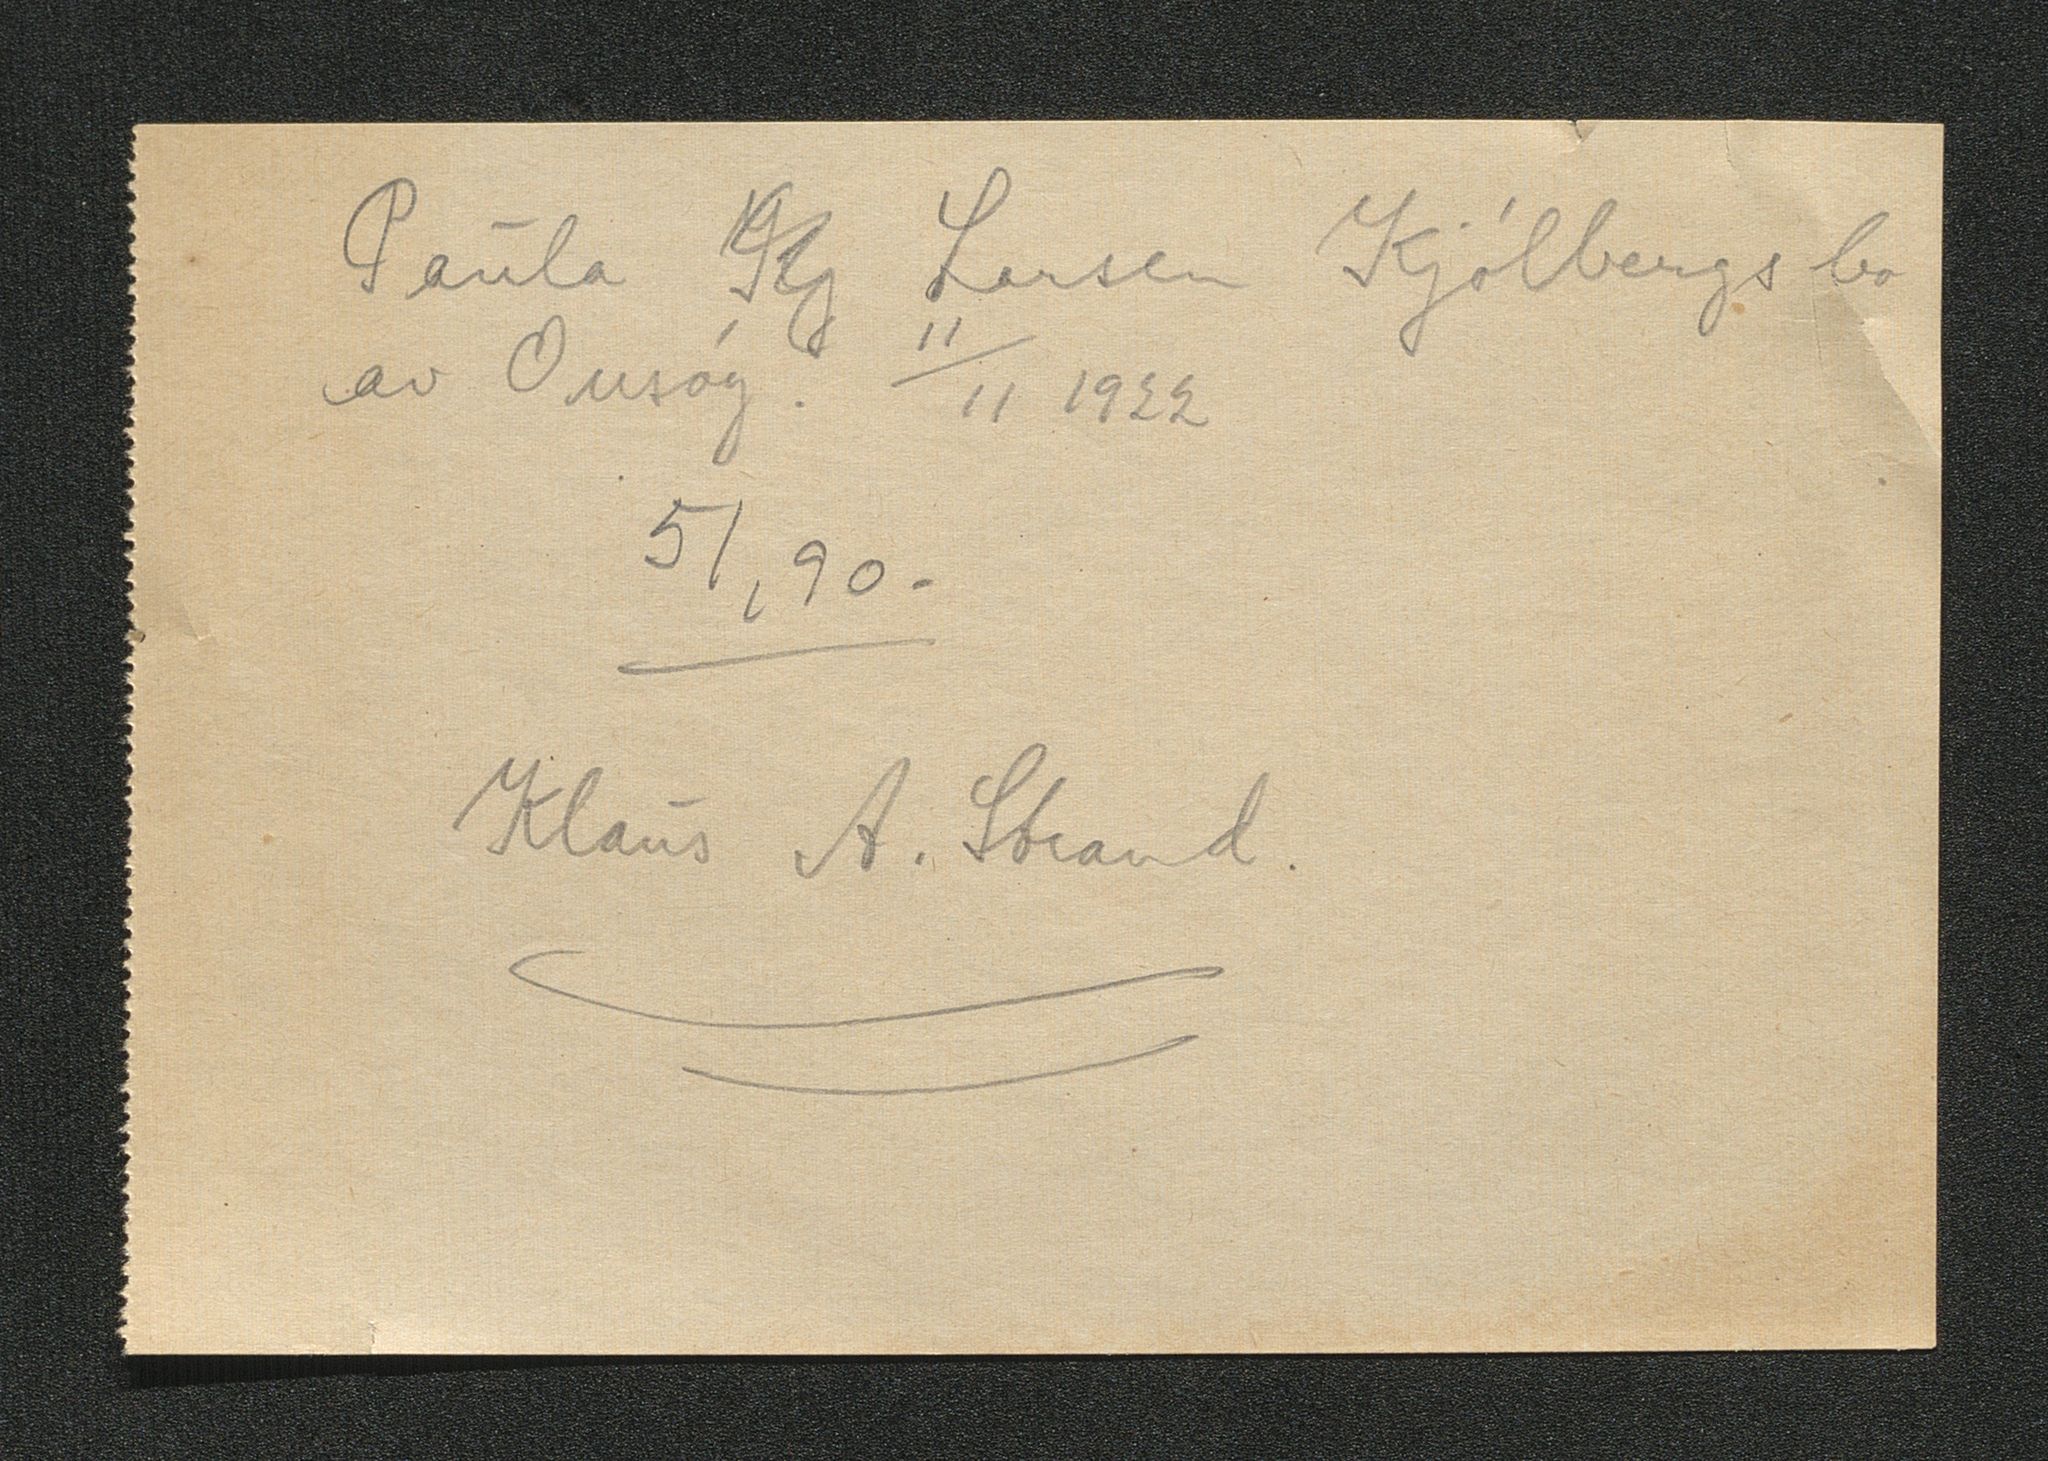 Paula Larsen Kjölbergs bo
av Onsöy. 11/11 1922
51,90.-
Klaus A. Strand.